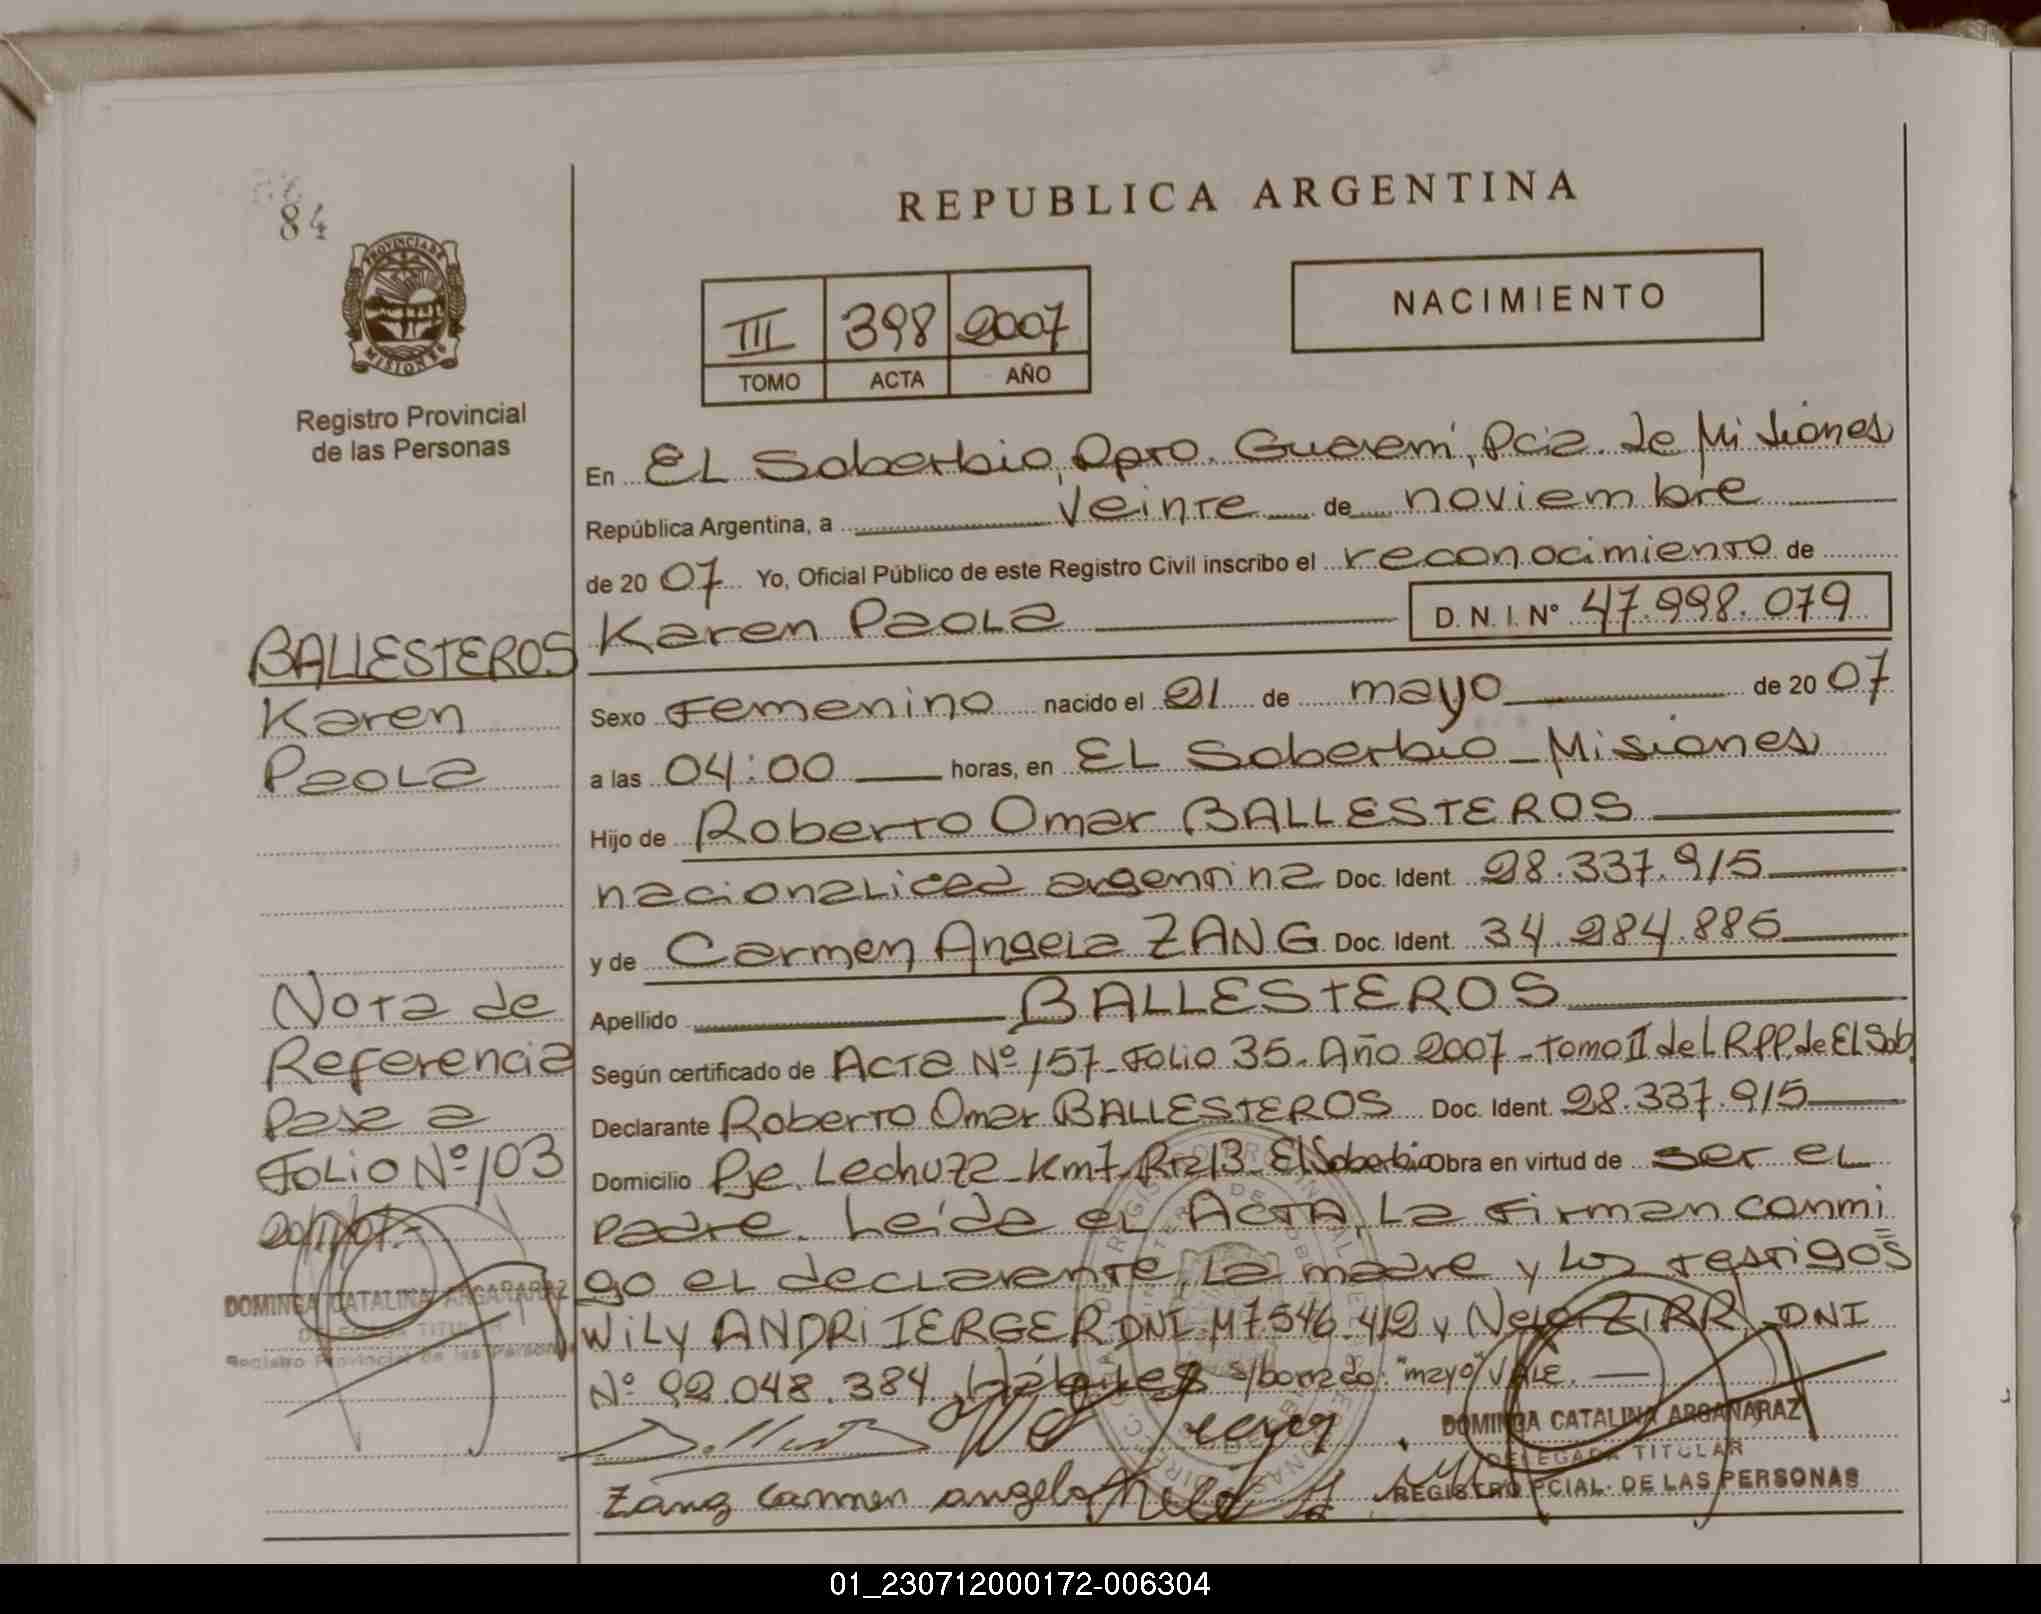 84
PROVINCIA DE
MISIONES
Registro Provincial
de las Personas
REPUBLICA ARGENTINA
III 398 2007
TOMO ACTA AÑO
NACIMIENTO
En EL Soberbio, Dpto. Guaraní, Pcia. de Misiones
República Argentina, a veinte de noviembre
de 20 07 Yo, Oficial Público de este Registro Civil inscribo el reconocimiento de
Karen Paola D.N.I. Nº 47.998.079
Sexo Femenino nacido el 21 de mayo de 20 07
a las 04:00 horas, en EL Soberbio - Misiones
Hijo de Roberto Omar BALLESTEROS
nacionalidad argentina Doc. Ident. 28.337.915
y de Carmen Angela ZANG Doc. Ident. 34.284.886
Apellido BALLESTEROS
Según certificado de Acta Nº 157 - Folio 35 - Año 2007 - Tomo II del R.P.P. de El Sob.
Declarante Roberto Omar BALLESTEROS Doc. Ident. 28.337.915
Domicilio Pje. Lechuza - Km7 - Rta 13 - El Soberbio Obra en virtud de ser el
padre. Leída el ACTA, La firman conmi
go el declarante, la madre y los testigos
Wily ANDRi IERGER DNI. M7.546.412 y Nelo ZiRR, DNI
Nº 92.048.384, hábiles s/borrado: "mayo" VALE.
Zang Carmen angela
DOMINGA CATALINA ARGAÑARAZ
DELEGADA TITULAR
REGISTRO PCIAL. DE LAS PERSONAS
BALLESTEROS
Karen
Paola
Nota de
Referencia
Pasa a
FOLIO Nº 103
20/11/07.-
DOMINGA CATALINA ARGAÑARAZ
DELEGADA TITULAR
Registro Provincial de las Personas
01_230712000172-006304